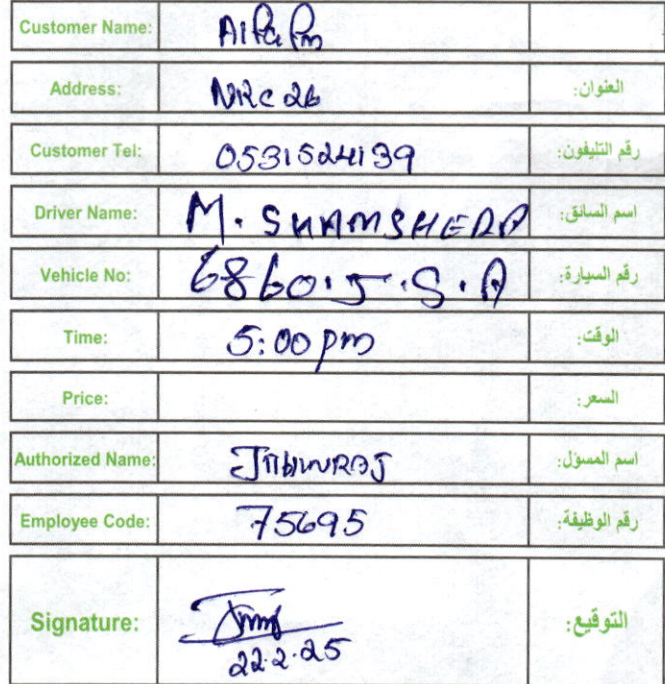 Customer Name:
Address: NRC 26 العنوان:
Customer Tel: 0531524139 رقم التليفون:
Driver Name: M. SHAMSHERA اسم السائق:
Vehicle No: 6860.J.S.A رقم السيارة:
Time: 5:00 pm الوقت:
Price: السعر:
Authorized Name: اسم المسؤل:
Employee Code: 75695 رقم الوظيفة:
Signature: 22.2.25 التوقيع: